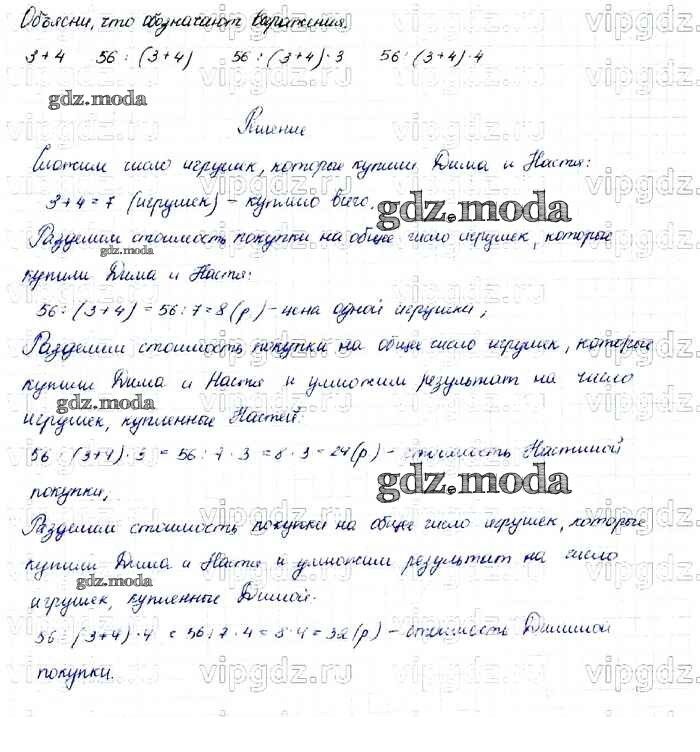 Объясни, что обозначают выражения.
3+4 56 : (3+4) 56 : (3+4)·3 56 : (3+4)·4
gdz.moda
Решение
Сложим число игрушек, которые купили Дима и Настя:
3+4=7 (игрушек) – куплено всего.
gdz.moda
Разделим стоимость покупки на общее число игрушек, которые
gdz.moda
купили Дима и Настя:
56 : (3+4) = 56 : 7 = 8 (р) – цена одной игрушки;
Разделим стоимость покупки на общее число игрушек, которые
купили Дима и Настя и умножим результат на число
gdz.moda
игрушек, купленные Настей:
56 : (3+4)·3 = 56 : 7·3 = 8·3 = 24 (р) – стоимость Настиной
gdz.moda
покупки,
Разделим стоимость покупки на общее число игрушек, которые
купили Дима и Настя и умножим результат на число
gdz.moda
игрушек, купленные Димой.
56 : (3+4)·4 = 56 : 7·4 = 8·4 = 32 (р) – стоимость Диминой
покупки.
vipgdz.ru